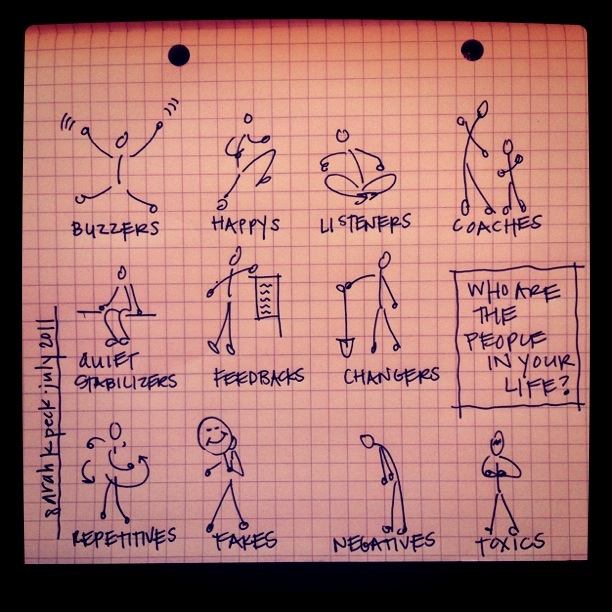 BUZZERS
HAPPYS
LISTENERS
COACHES
QUIET
STABILIZERS
FEEDBACKS
CHANGERS
WHO ARE
THE
PEOPLE
IN YOUR
LIFE?
REPETITIVES
FAKES
NEGATIVES
TOXICS
sarah k peck · july 2011